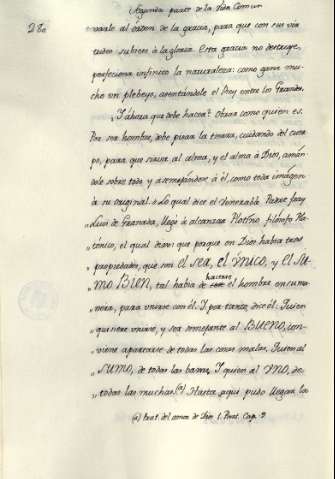 Segunda parte de la Vida Comun
280
vaale al órden de la gracia, para que con sus vir
tudes subiese à la gloria. Esta gracia no destruye,
perfeciona infinito la naturaleza: como gana mu-
cho un plebeyo, asentandole el Rey entre los Grandes.
¿Y ahora que debe hacer? Obrar como quien es.
Por ser hombre, debe pisar la tierra, cuidando del cuer
po, para que sirva al alma, y el alma à Dios, amán
dole sobre todo y asemejandose à él, como toda imágen
à su original. A lo qual dice el Venerable Padre Fray
Luis de Granada, llegó à alcanzar Plotino filósofo Pla-
tónico, el qual decia: que porque en Dios habia tres
propiedades, que son el ser, el UNICO, y El SU-
MO BUEN, tal habia de hacerse el hombre en su ma-
nera, para unirse con él. Y por tanto, dice él: Quien
quisiere unirse, y ser semejante al BUENO, con-
viene apartarse de todas las cosas malas. Quien al
SUMO, de todas las bajas. Y quien al UNO, de
todas las muchas.(a) Hasta aqui pudo llegar la
(a) Trat. del amor de Dios 1. Part. Cap. 9